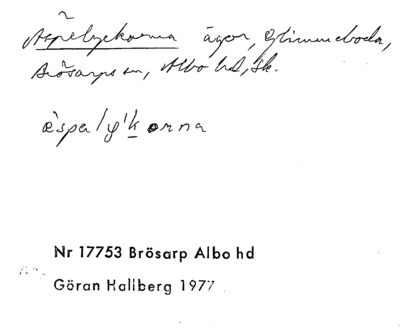 Äspelyckorna ägor, Glimmeboda,
Brösarps sn, Albo hd, Sk.
ɛ̀spaly'korna
Nr 17753 Brösarp Albo hd
Göran Hallberg 1977